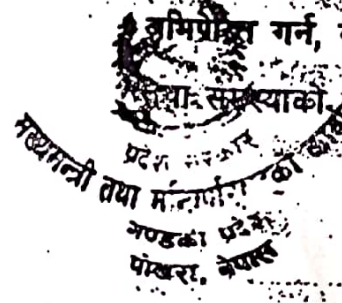 अभिप्रेरित गर्न,
तथा समस्याको
प्रदेश सरकार
मुख्यमन्त्री तथा मन्त्रीपरिषद्को
गण्डकी प्रदेश
पोखरा, नेपाल